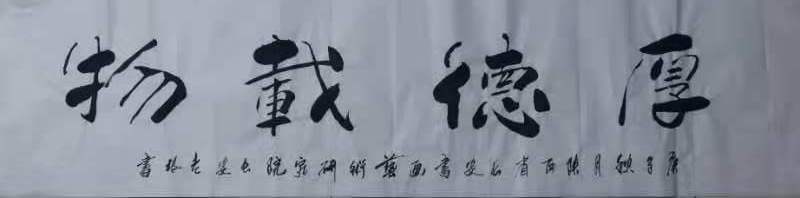 厚德載物
庚子秋月陝西省長安書畫藝術研究院長安老林書